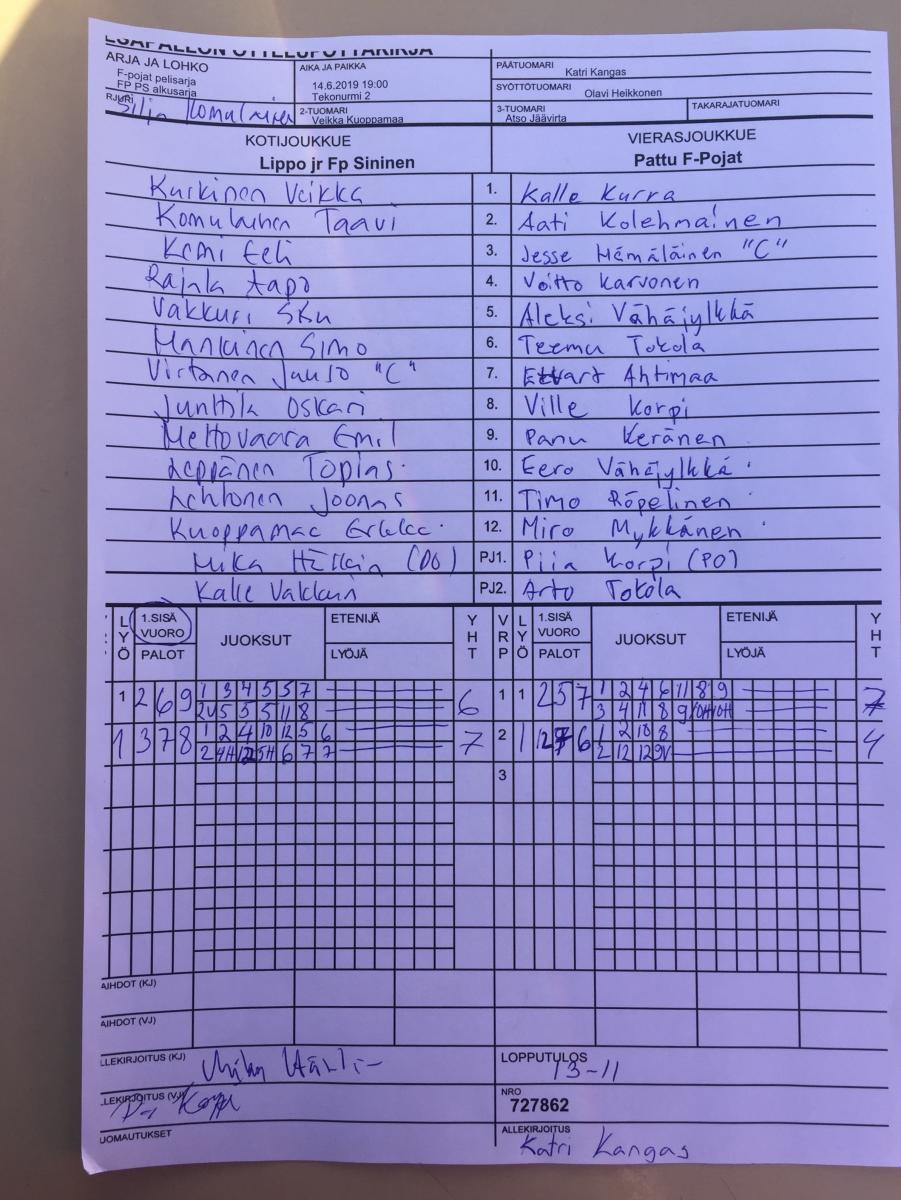 ESÄPALLON OTTELUPÖYTÄKIRJA
ARJA JA LOHKO
F-pojat pelisarja
FP PS alkusarja
AIKA JA PAIKKA
14.6.2019 19:00
Tekonurmi 2
PÄÄTUOMARI
Katri Kangas
SYÖTTÖTUOMARI
Olavi Heikkonen
RJURI
Silja Komulainen
2-TUOMARI
Veikka Kuoppamaa
3-TUOMARI
Atso Jäävirta
TAKARAJATUOMARI
KOTIJOUKKUE
Lippo jr Fp Sininen
VIERASJOUKKUE
Pattu F-Pojat
Kurkinen Veikka 1. Kalle Kurra
Komulainen Taavi 2. Aati Kolehmainen
Kemi Eeli 3. Jesse Hämäläinen "C"
Rajala Aapo 4. Voitto Karvonen
Vakkuri 5. Aleksi Vähäjylkkä
Manninen Simo 6. Teemu Tokola
Virtanen Juuso "C" 7. Ahtimaa
Junttila Oskari 8. Ville Korpi
Mettovaara Emil 9. Panu Keränen
Leppänen Topias 10. Eero Vähäjylkkä
Lehtonen Joonas 11. Timo Röpelinen
Kuoppamaa 12. Miro Mykkänen
Mika (PO) PJ1. Piia Korpi (PO)
Kalle Vakkuri PJ2. Arto Tokola
LYÖ 1.SISÄ VUORO PALOT JUOKSUT ETENIJÄ LYÖJÄ YHT VRP LYÖ 1.SISÄ VUORO PALOT JUOKSUT ETENIJÄ LYÖJÄ YHT
1 2 6 9 1 3 4 5 5 7 6 1 1 2 5 7 1 2 4 6 11 8 9 7
2V 5 5 5 11 8 3 4 11 8 9 10H 10H
1 3 7 8 1 2 4 10 12 5 6 7 2 1 12 6 1 2 10 8 4
2 4H 12 5H 6 7 7 2 12 12 9V
3
AIHDOT (KJ)
AIHDOT (VJ)
LLEKIRJOITUS (KJ)
LOPPUTULOS
13-11
LLEKIRJOITUS (VJ)
NRO
727862
UOMAUTUKSET
ALLEKIRJOITUS
Katri Kangas